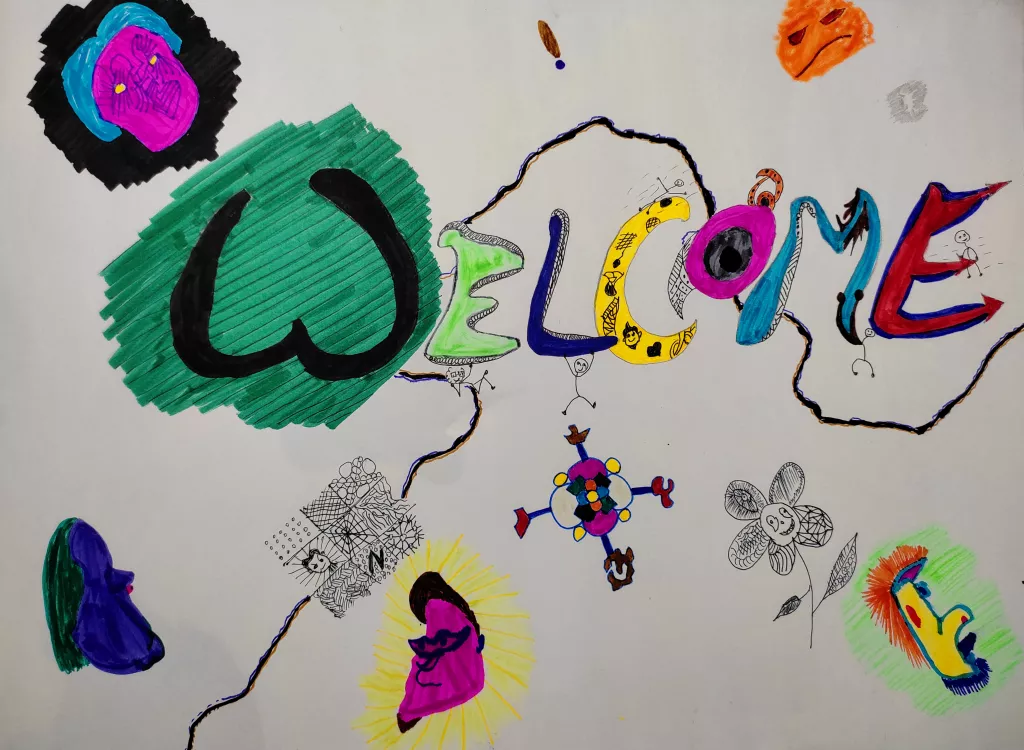 WELCOME
N